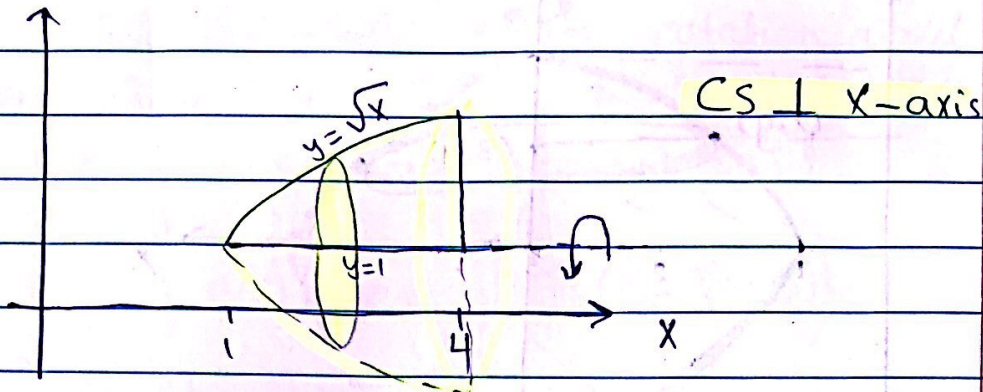 CS ⊥ x-axis
y=√x
y=1
1
4
x